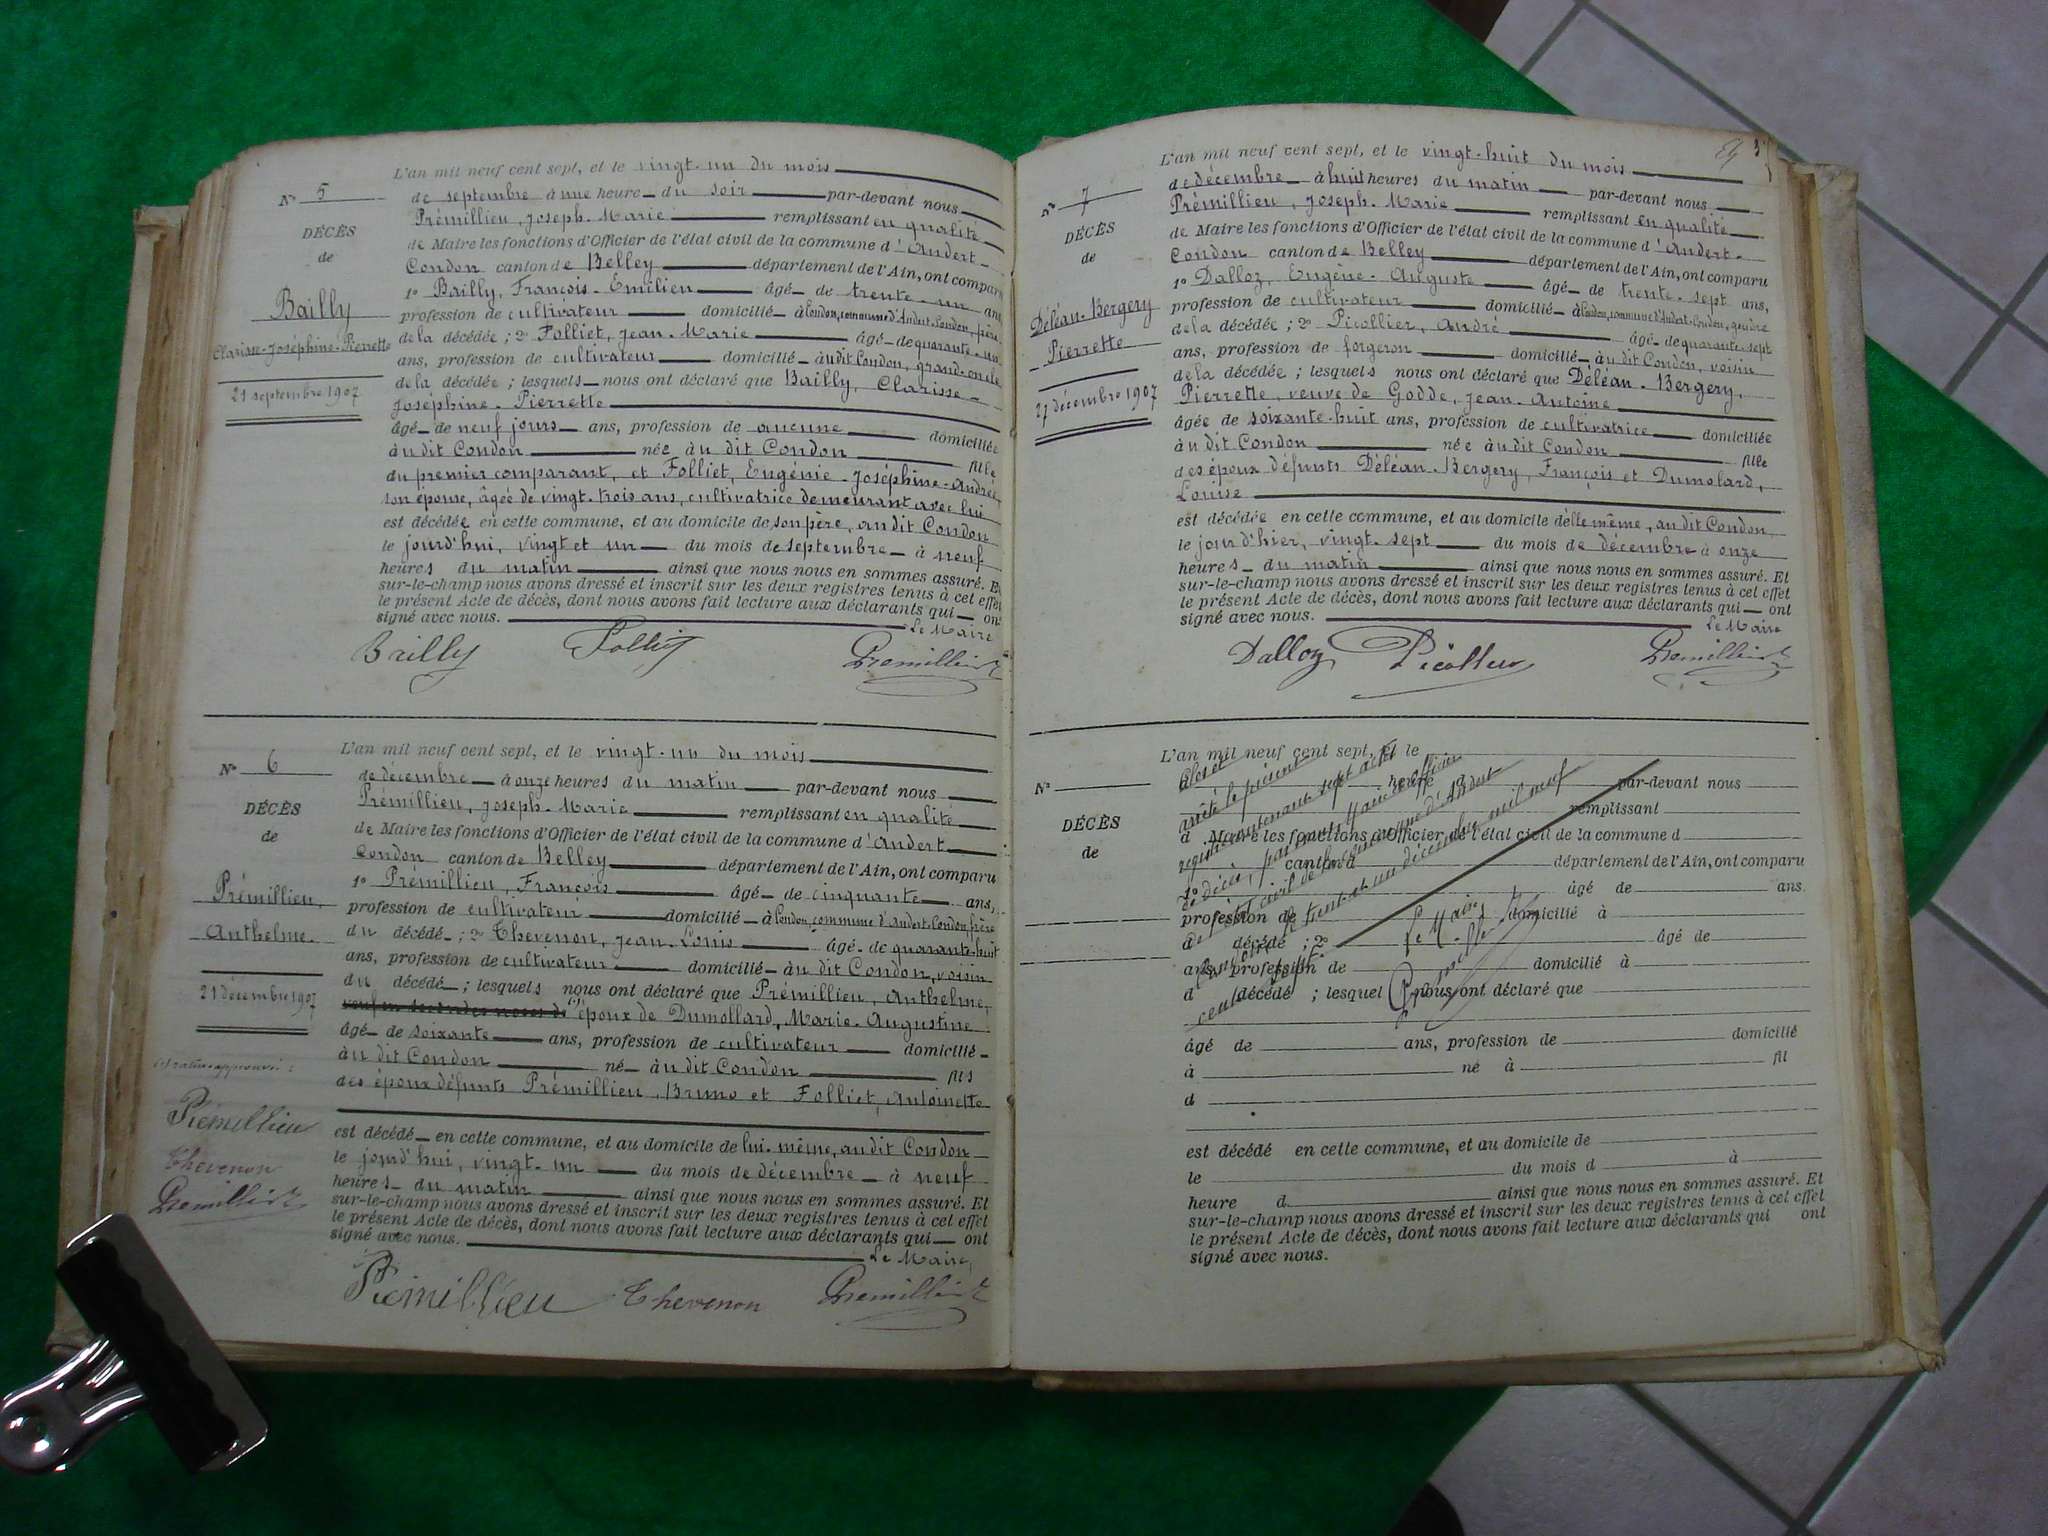 N° 5
DÉCÈS
de
Bailly
Clarisse-Joséphine-Pierrette
21 septembre 1907
L'an mil neuf cent sept, et le vingt-un du mois
de septembre à une heure du soir par-devant nous
Prémillieu, Joseph-Marie remplissant en qualité
de Maire les fonctions d'Officier de l'état civil de la commune d'Andert-
Condon canton de Belley département de l'Ain, ont comparu
1° Bailly, François-Emilien âgé de trente-un ans,
profession de cultivateur domicilié à Condon, commune d'Andert-Condon, père
de la décédée ; 2° Folliet, Jean-Marie âgé de quarante-un
ans, profession de cultivateur domicilié au dit Condon, grand-oncle
de la décédée ; lesquels nous ont déclaré que Bailly, Clarisse-
Joséphine-Pierrette
âgé de neuf jours ans, profession de aucune domiciliée
à u dit Condon née à u dit Condon fille
du premier comparant, et Folliet, Eugénie-Joséphine-Andréé,
son épouse, âgée de vingt-trois ans, cultivatrice demeurant avec lui
est décédée en cette commune, et au domicile de son père, au dit Condon
le jourd'hui, vingt et un du mois de septembre à neuf
heures du matin ainsi que nous nous en sommes assuré. Et
sur-le-champ nous avons dressé et inscrit sur les deux registres tenus à cet effet
le présent Acte de décès, dont nous avons fait lecture aux déclarants qui ont
signé avec nous.
Le Maire
Bailly Folliet Premillieu
N° 6
DÉCÈS
de
Prémillieu,
Anthelme.
21 décembre 1907
Prémillieu
Thevenon
Premillieu
L'an mil neuf cent sept, et le vingt-un du mois
de décembre à onze heures du matin par-devant nous
Prémillieu, Joseph-Marie remplissant en qualité
de Maire les fonctions d'Officier de l'état civil de la commune d'Andert
Condon canton de Belley département de l'Ain, ont comparu
1° Prémillieu, François âgé de cinquante ans,
profession de cultivateur domicilié à Condon, commune d'Andert-Condon, frère
du décédé ; 2° Thevenon, Jean-Louis âgé de quarante-huit
ans, profession de cultivateur domicilié à u dit Condon, voisin
du décédé ; lesquels nous ont déclaré que Prémillieu, Anthelme,
époux de Dumollard, Marie-Augustine
âgé de soixante ans, profession de cultivateur domicilié
à u dit Condon né à u dit Condon fils
des époux défunts Prémillieu, Bruno et Folliet, Antoinette
est décédé en cette commune, et au domicile de lui-même, au dit Condon
le jourd'hui, vingt-un du mois de décembre à neuf
heures du matin ainsi que nous nous en sommes assuré. Et
sur-le-champ nous avons dressé et inscrit sur les deux registres tenus à cet effet
le présent Acte de décès, dont nous avons fait lecture aux déclarants qui ont
signé avec nous.
Le Maire,
Prémillieu Thevenon Premillieu
N° 7
DÉCÈS
de
Déléan-Bergery
Pierrette
27 décembre 1907
L'an mil neuf cent sept, et le vingt-huit du mois
de décembre à huit heures du matin par-devant nous
Prémillieu, Joseph-Marie remplissant en qualité
de Maire les fonctions d'Officier de l'état civil de la commune d'Andert-
Condon canton de Belley département de l'Ain, ont comparu
1° Dalloz, Eugène-Auguste âgé de trente-sept ans,
profession de cultivateur domicilié à Condon, commune d'Andert-Condon, gendre
de la décédée ; 2° Picollier, André âgé de quarante-sept
ans, profession de forgeron domicilié à u dit Condon, voisin
de la décédée ; lesquels nous ont déclaré que Déléan-Bergery,
Pierrette, veuve de Godde, Jean-Antoine
âgée de soixante-huit ans, profession de cultivatrice domiciliée
à u dit Condon née à u dit Condon fille
des époux défunts Déléan-Bergery, François et Dumolard,
Louise
est décédée en cette commune, et au domicile d'elle même, au dit Condon
le jour d'hier, vingt-sept du mois de décembre à onze
heures du matin ainsi que nous nous en sommes assuré. Et
sur-le-champ nous avons dressé et inscrit sur les deux registres tenus à cet effet
le présent Acte de décès, dont nous avons fait lecture aux déclarants qui ont
signé avec nous.
Le Maire
Dalloz Picollier Premillieu
N°
DÉCÈS
de
L'an mil neuf cent sept, et le
heure d par-devant nous
remplissant
d Maire les fonctions d'Officier de l'état civil de la commune d
canton d département de l'Ain, ont comparu
1° âgé de ans.
profession de domicilié à
d décédé ; 2° âgé de
ans, profession de domicilié à
d décédé ; lesquel nous ont déclaré que
âgé de ans, profession de domicilié
à né à fil
d
est décédé en cette commune, et au domicile de
le du mois d à
heure d ainsi que nous nous en sommes assuré. Et
sur-le-champ nous avons dressé et inscrit sur les deux registres tenus à cet effet
le présent Acte de décès, dont nous avons fait lecture aux déclarants qui ont
signé avec nous.
Clos et
arrêté le présent
registre contenant sept actes
de décès, par nous Maire officier
de l'état civil de la commune d'Andert
Condon, le trente et un décembre mil neuf
cent sept.
Le Maire